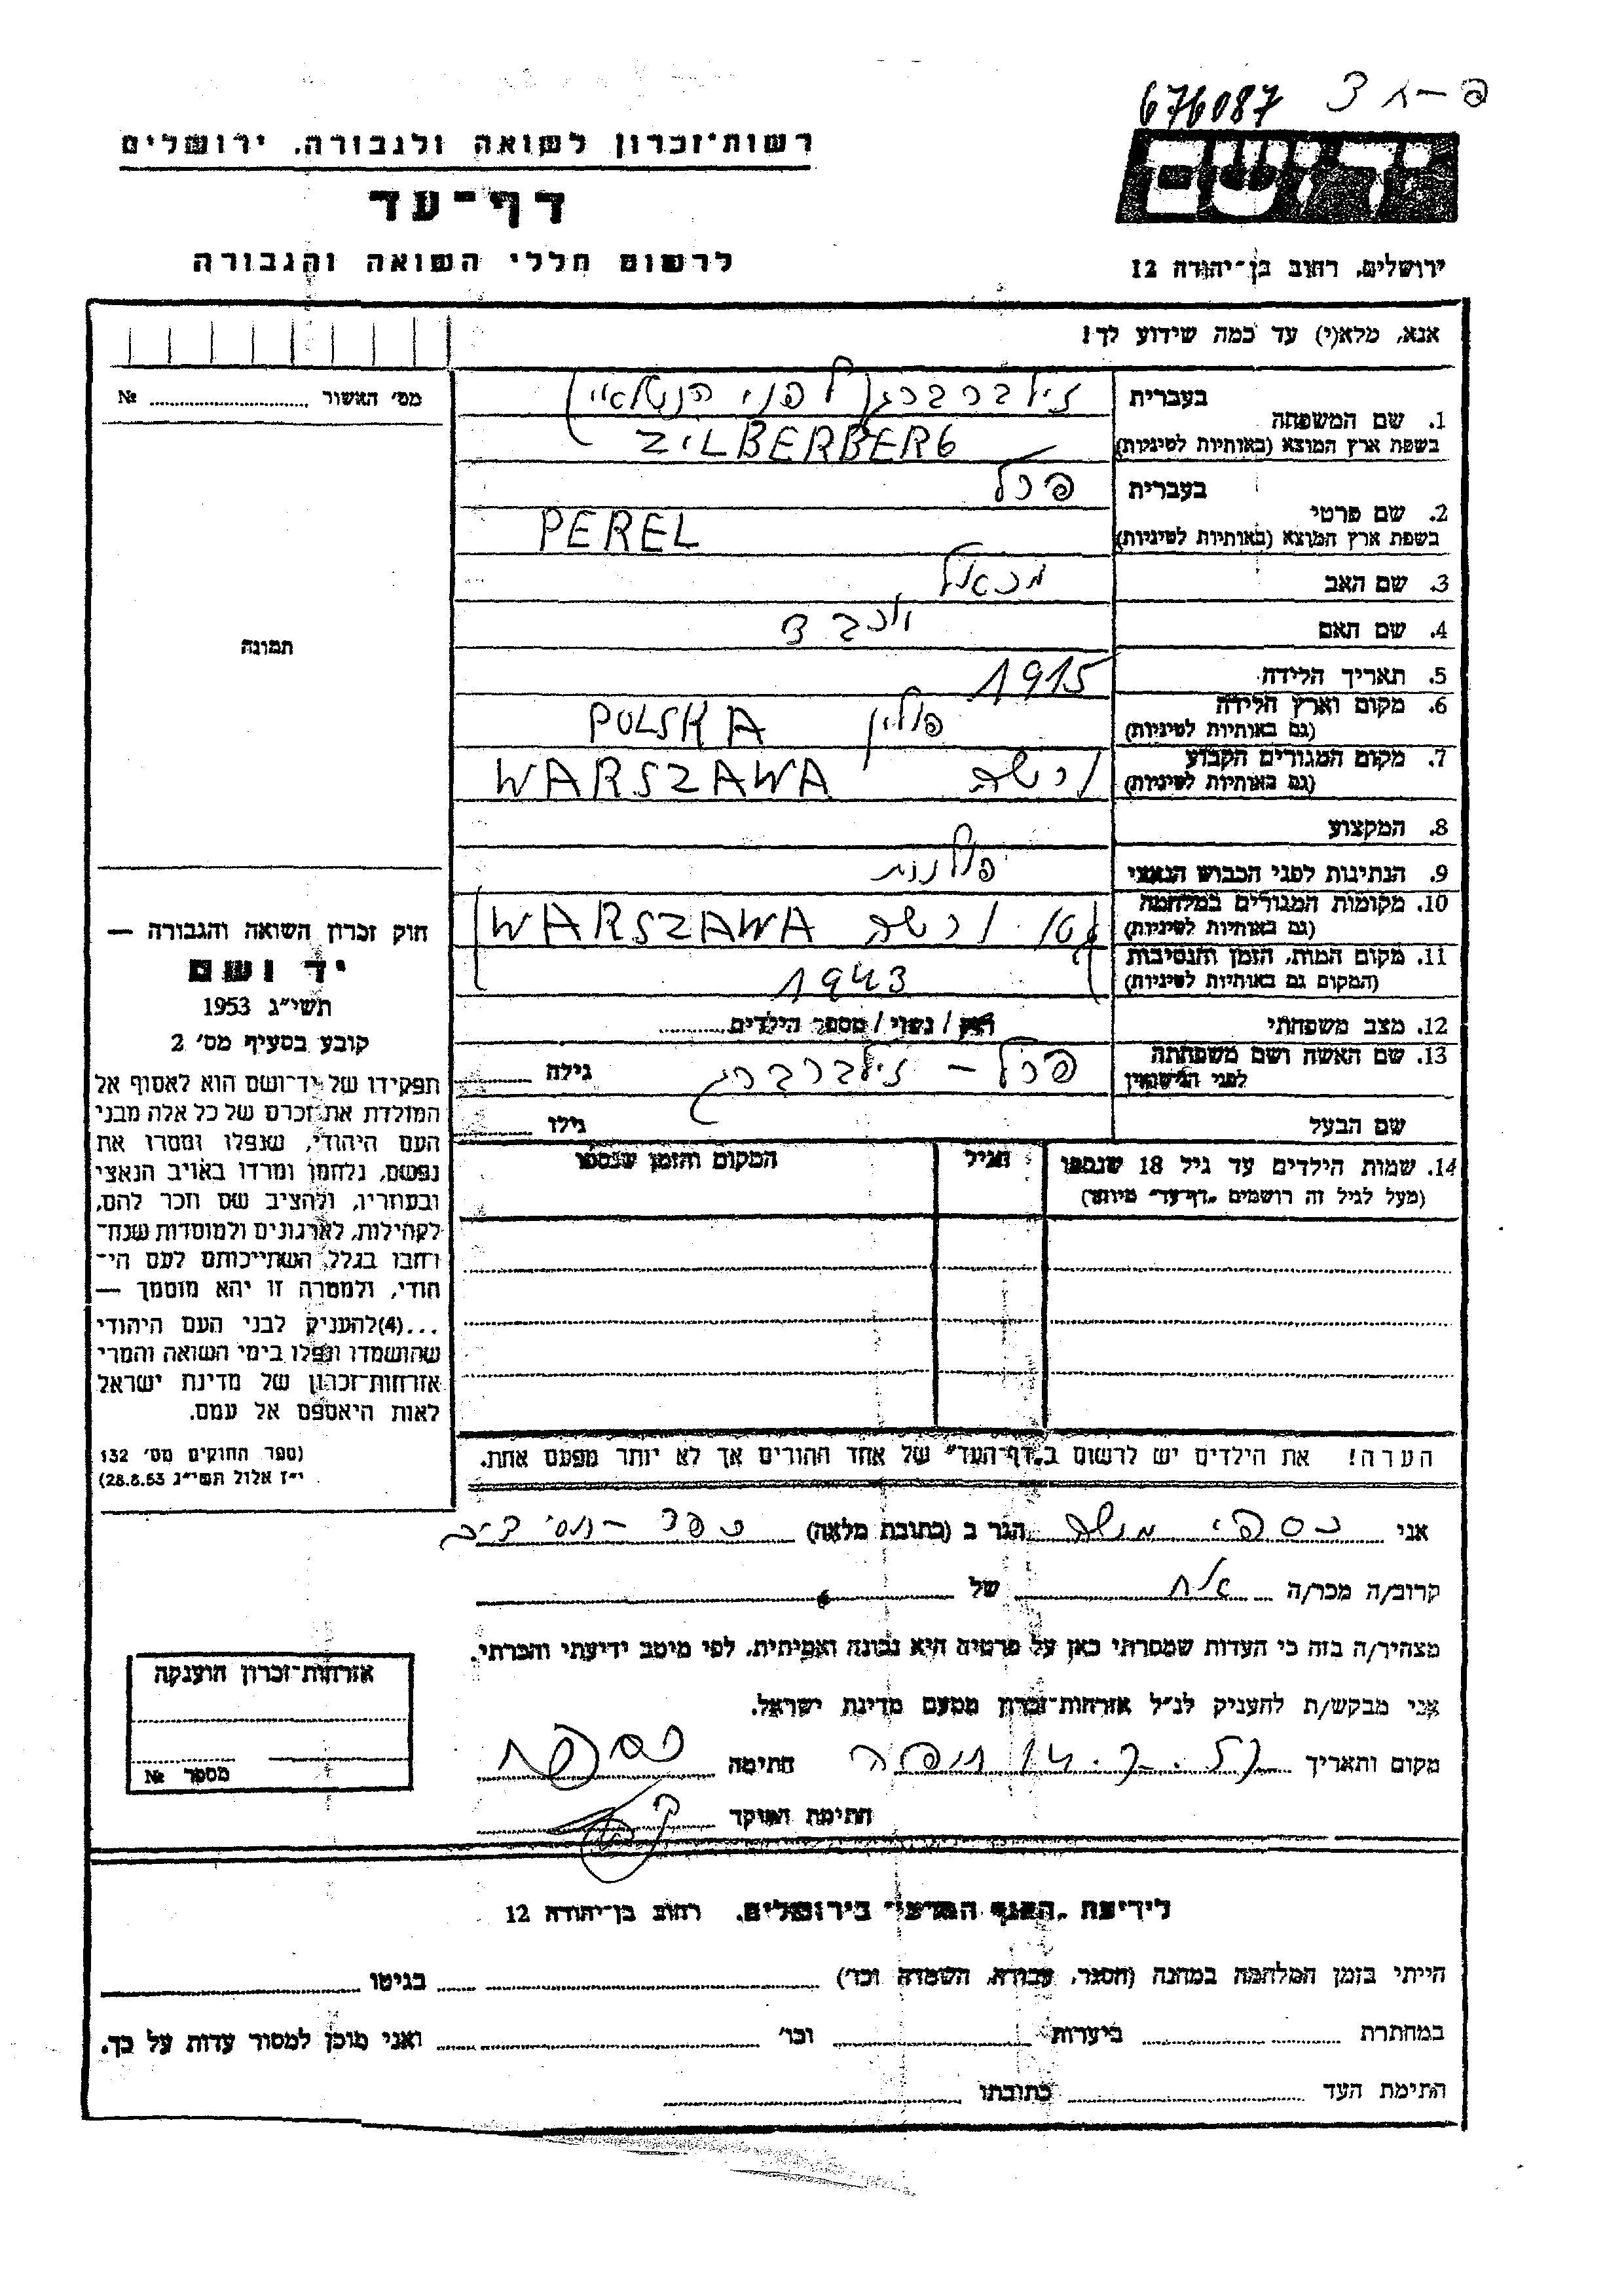 676087
רשות־זכרון לשואה ולגבורה, ירושלים
דף־עד
לרשום חללי השואה והגבורה
יד ושם
ירושלים, רחוב בן־יהודה 12
אנא, מלא(י) עד כמה שידוע לך!
מס׳ האשור № 
1. שם המשפחה
בעברית זילברברג (לפני הנשואין)
בשפת ארץ המוצא (באותיות לטיניות) ZILBERBERG
2. שם פרטי
בעברית פרל
בשפת ארץ המוצא (באותיות לטיניות) PEREL
3. שם האב
4. שם האם
תמונה
5. תאריך הלידה 1915
6. מקום וארץ הלידה (גם באותיות לטיניות) פולין POLSKA
7. מקום המגורים הקבוע (גם באותיות לטיניות) ורשה WARSZAWA
8. המקצוע
9. הנתינות לפני הכבוש הנאצי פולנית
10. מקומות המגורים במלחמה (גם באותיות לטיניות) גטו ורשה WARSZAWA
11. מקום המות, הזמן והנסיבות (המקום גם באותיות לטיניות) 1943
12. מצב משפחתי רווק / נשוי / מספר הילדים
13. שם האשה ושם משפחתה לפני הנישואין פרל – זילברברג גילה
שם הבעל גילו
14. שמות הילדים עד גיל 18 שנספו (מעל לגיל זה רושמים „דף־עד״ מיוחד)
הגיל
המקום והזמן שנספו
הערה! את הילדים יש לרשום ב„דף־העד״ של אחד ההורים אך לא יותר מפעם אחת.
חוק זכרון השואה והגבורה —
יד ושם
תשי״ג 1953
קובע בסעיף מס׳ 2
תפקידו של יד־ושם הוא לאסוף אל
המולדת את זכרם של כל אלה מבני
העם היהודי, שנפלו ומסרו את
נפשם, נלחמו ומרדו באויב הנאצי
ובעוזריו, ולהציב שם וזכר להם,
לקהילות, לארגונים ולמוסדות שנח־
רבו בגלל השתייכותם לעם הי־
הודי, ולמטרה זו יהא מוסמך —
...(4) להעניק לבני העם היהודי
שהושמדו ונפלו בימי השואה והמרי
אזרחות־זכרון של מדינת ישראל
לאות היאספם אל עמם.
(ספר החוקים מס׳ 132
י״ז אלול תשי״ג 28.8.53)
אני כספי משה הגר ב (כתובת מלאה)
קרוב/ה מכר/ה אח של
מצהיר/ה בזה כי העדות שמסרתי כאן על פרטיה היא נכונה ואמיתית, לפי מיטב ידיעתי והכרתי.
אני מבקש/ת להעניק לנ״ל אזרחות־זכרון מטעם מדינת ישראל.
מקום ותאריך חתימה
חתימת הפוקד
אזרחות־זכרון הוענקה
מספר №
לידיעת „האגף המרכזי״ בירושלים, רחוב בן־יהודה 12
הייתי בזמן המלחמה במחנה (הסגר, עבודה, השמדה וכו׳) בגיטו
במחתרת ביערות וכו׳ ואני מוכן למסור עדות על כך.
חתימת העד כתובתו